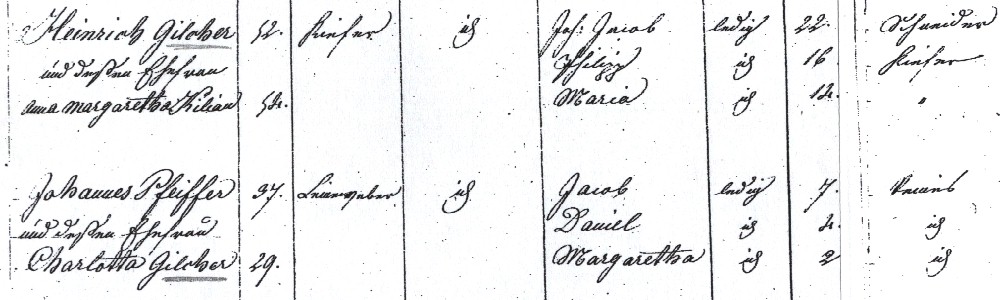 Heinrich Gilcher 52. Kiefer id Joh: Jacob ledig 22. Schneider
und deßen Ehefrau Philipp id 16 Kiefer
Anna Margaretha Kilian 54. Maria id 14. "
Johannes Pfeiffer 37. Leineweber id Jacob ledig 7.
und deßen Ehefrau Daniel id 4. id
Charlotta Gilcher 29. Margaretha id 2 id